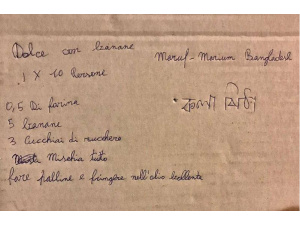 Dolce con banane
Maruf - Marium Bangladesh
1 X 10 Persone
কলা পিঠা
0,5 Di farina
5 banane
3 Cucchiai di zucchero
Mischia tutto
fare palline e friggere nell'olio bollente